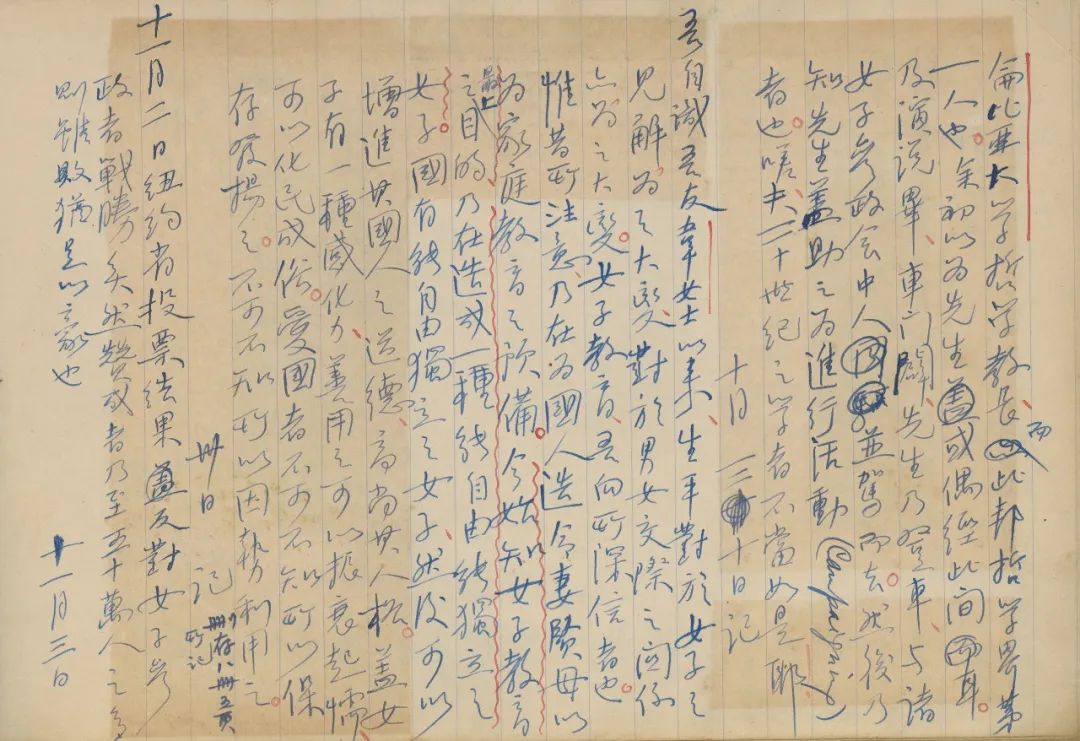 侖比亞大学哲学教長而此邦哲学界第
一人也。余初以為先生盖或偶經此間耳。
及演說畢、車門闢、先生乃登車、与諸
女子參政会中人並駕而去。然後乃
知先生盖助之為進行活動(Campaigning)
者也。嗟夫、二十世紀之学者不當如是耶、
十月三十日記
吾自識吾友韋女士以来、生平對於女子之
見解為之大變、對於男女交際之関係
亦為之大變。女子教育、吾向所深信者也。
惟昔所注意、乃在為國人造令妻賢母以
為家庭教育之預備。今始知女子教育
之最上目的乃在造成一種能自由能獨立之
女子。國有能自由獨立之女子、然後可以
增進其國人之道德、高尚其人格。盖女
子有一種感化力、善用之可以振衰起懦、
可以化民成俗。愛國者不可不知所以保
存發揚之。不可不知所以因勢利用之。
卅日記
所記
十一月二日紐約省投票結果盖反對女子參
政者戰勝矣然賛成者乃至五十萬人之多
則雖敗猶足以豪也
十一月三日